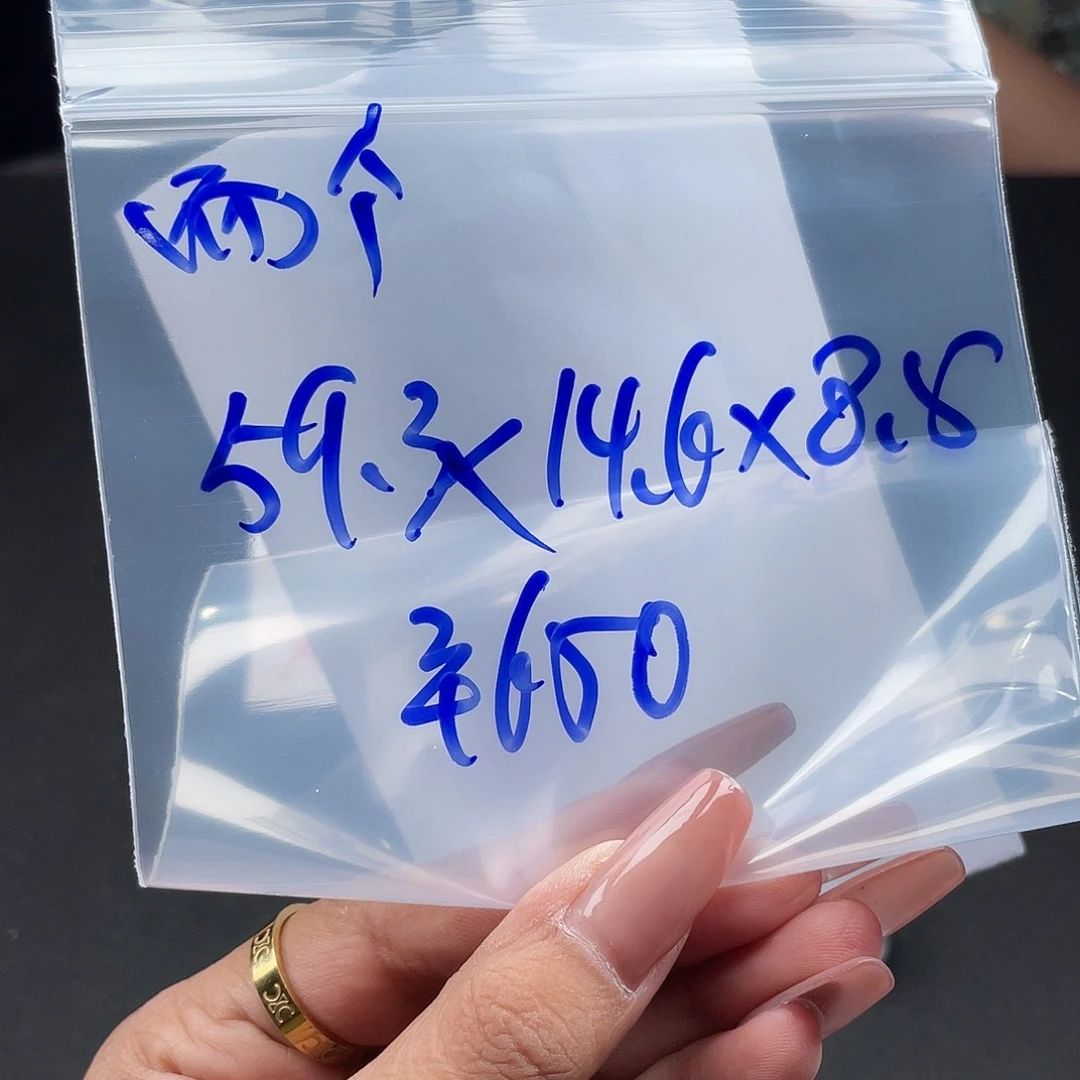 两个
59.3×14.6×8.8
¥650